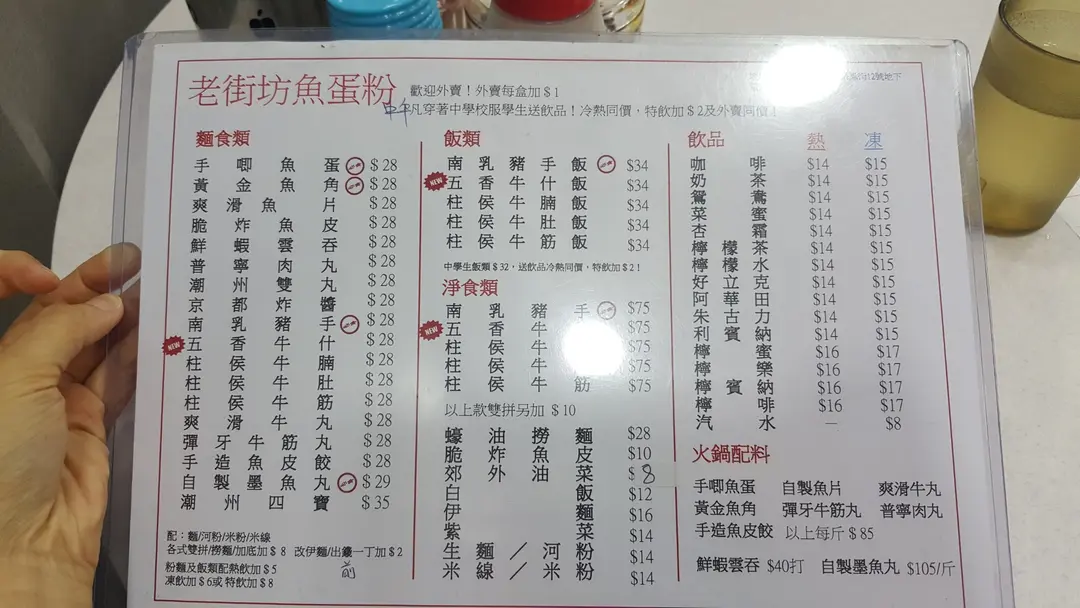 老街坊魚蛋粉 歡迎外賣！外賣每盒加＄1
12號地下
中午凡穿著中學校服學生送飲品！冷熱同價，特飲加＄2及外賣同價！
麵食類
手唧魚蛋 $28
黃金魚角 $28
爽滑魚片 $28
脆炸魚皮 $28
鮮蝦雲吞 $28
普寧肉丸 $28
潮州雙丸 $28
京都炸醬 $28
南乳豬手 $28
NEW 五香牛什 $28
柱侯牛腩 $28
柱侯牛肚 $28
柱侯牛筋 $28
爽滑牛丸 $28
彈牙牛筋丸 $28
手造魚皮餃 $28
自製墨魚丸 $29
潮州四寶 $35
配：麵/河粉/米粉/米線
各式雙拼/撈麵/加底加＄8 改伊麵/出前一丁加＄2
粉麵及飯類配熱飲加＄5
凍飲加＄6或 特飲加＄8
飯類
南乳豬手飯 $34
NEW 五香牛什飯 $34
柱侯牛腩飯 $34
柱侯牛肚飯 $34
柱侯牛筋飯 $34
中學生飯類＄32，送飲品冷熱同價，特飲加＄2！
淨食類
南乳豬手 $75
NEW 五香牛 $75
柱侯牛 $75
柱侯牛 $75
柱侯牛筋 $75
以上款雙拼另加 ＄10
蠔油撈麵 $28
脆炸魚皮 $10
郊外油菜 $8
白飯 $12
伊麵 $16
紫菜 $14
生麵／河粉 $14
米線／米粉 $14
飲品 熱 凍
咖啡 $14 $15
奶茶 $14 $15
鴛鴦 $14 $15
菜蜜 $14 $15
杏霜 $14 $15
檸檬茶 $14 $15
檸檬水 $14 $15
好立克 $14 $15
阿華田 $14 $15
朱古力 $14 $15
利賓納 $14 $15
檸蜜 $16 $17
檸樂 $16 $17
檸賓納 $16 $17
檸啡 $16 $17
汽水 — $8
火鍋配料
手唧魚蛋 自製魚片 爽滑牛丸
黃金魚角 彈牙牛筋丸 普寧肉丸
手造魚皮餃 以上每斤＄85
鮮蝦雲吞 $40打 自製墨魚丸 $105/斤